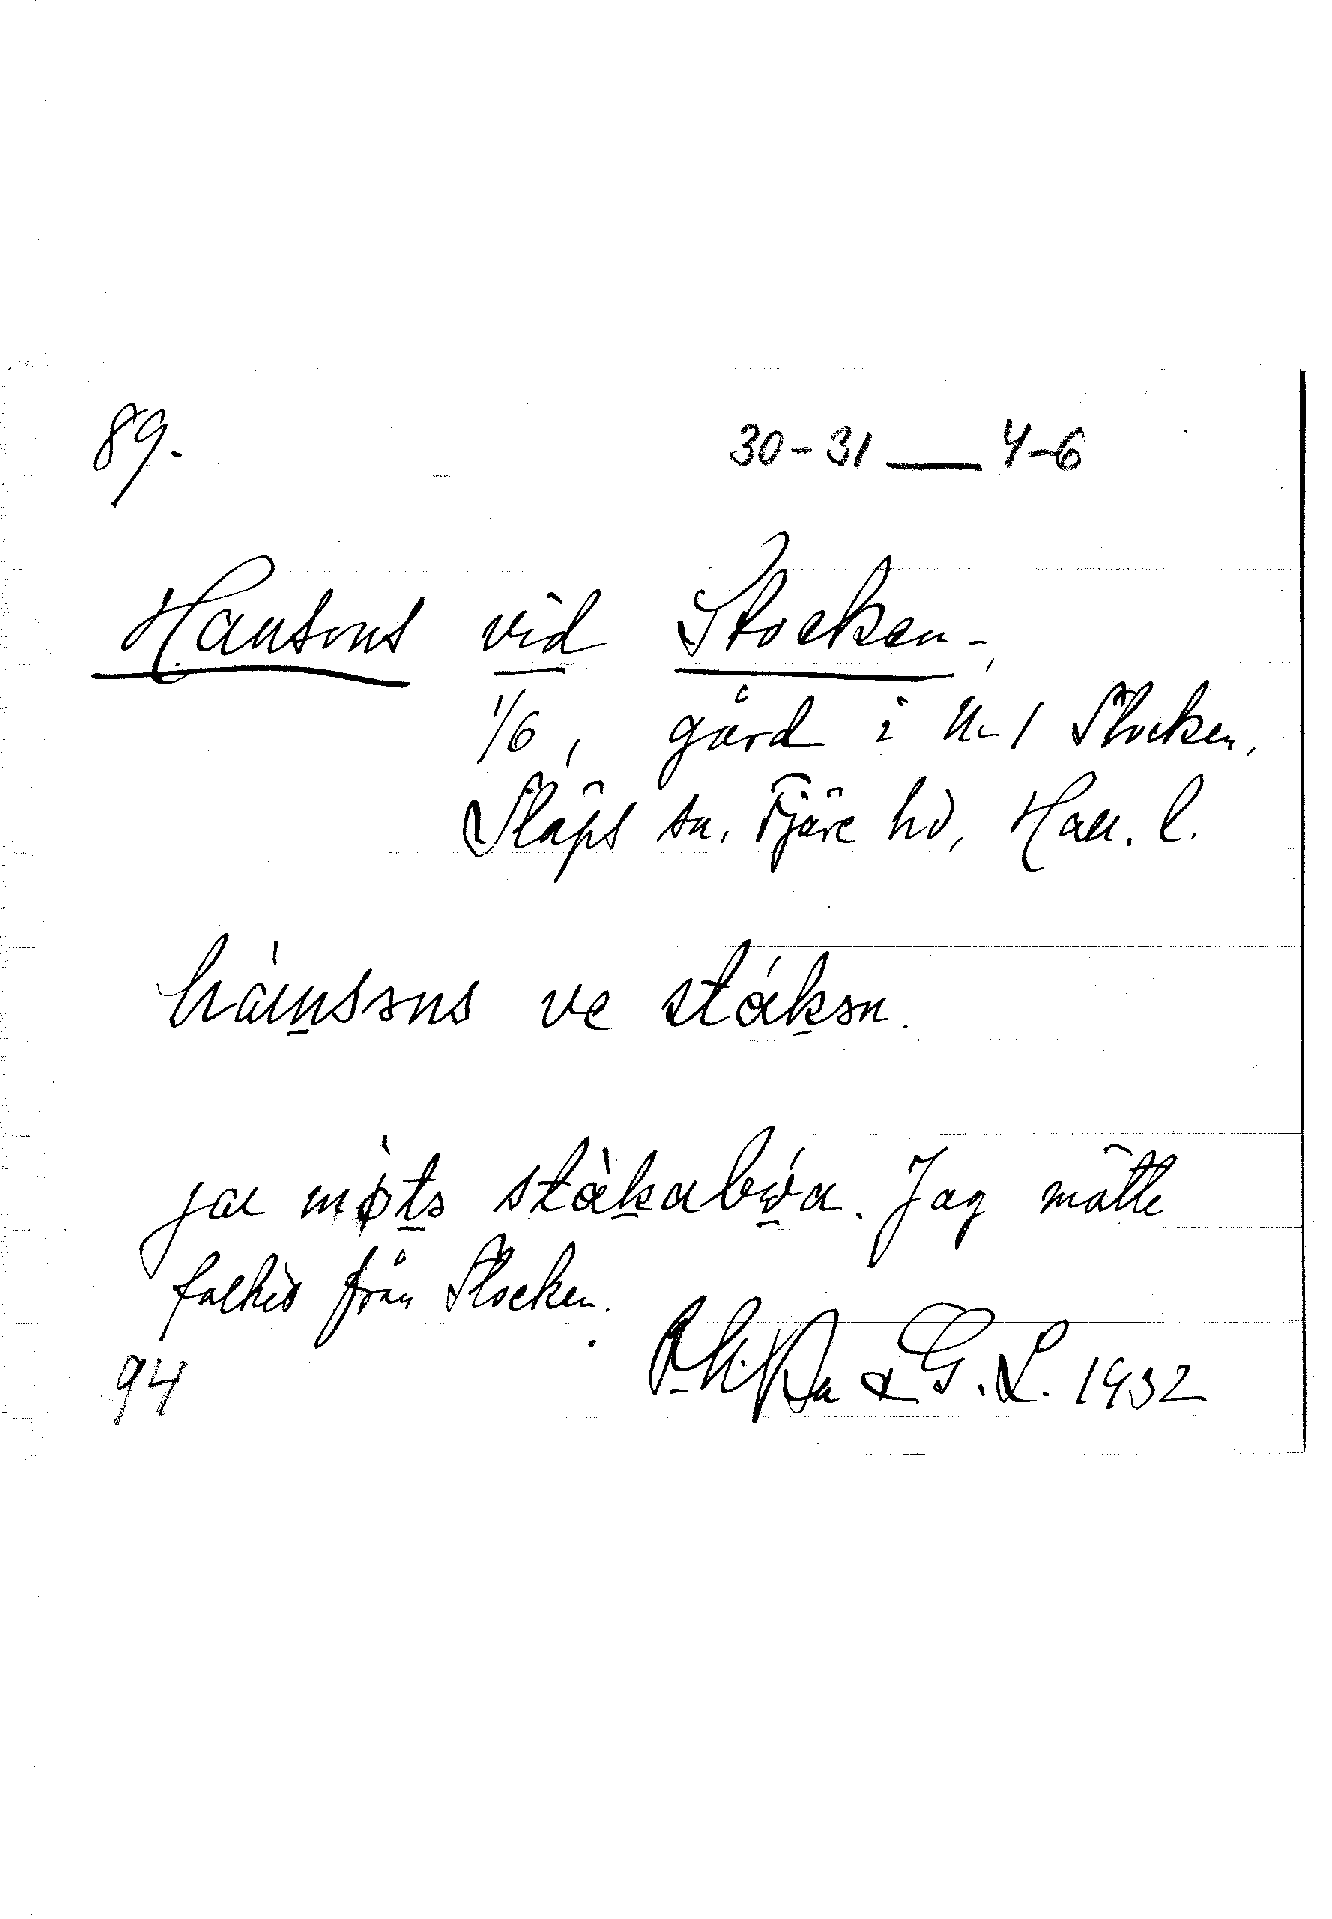 89. 30-31 — 4-6
Hansons vid Stocken-,
1/6, gård i N:r 1 Stocken,
Släps sn, Fjäre hd, Hall. l.
hànsəns ve stákən.
ja mø̀tə stàkabóa. Jag mötte
folket från Stocken.
94 & G. L. 1932